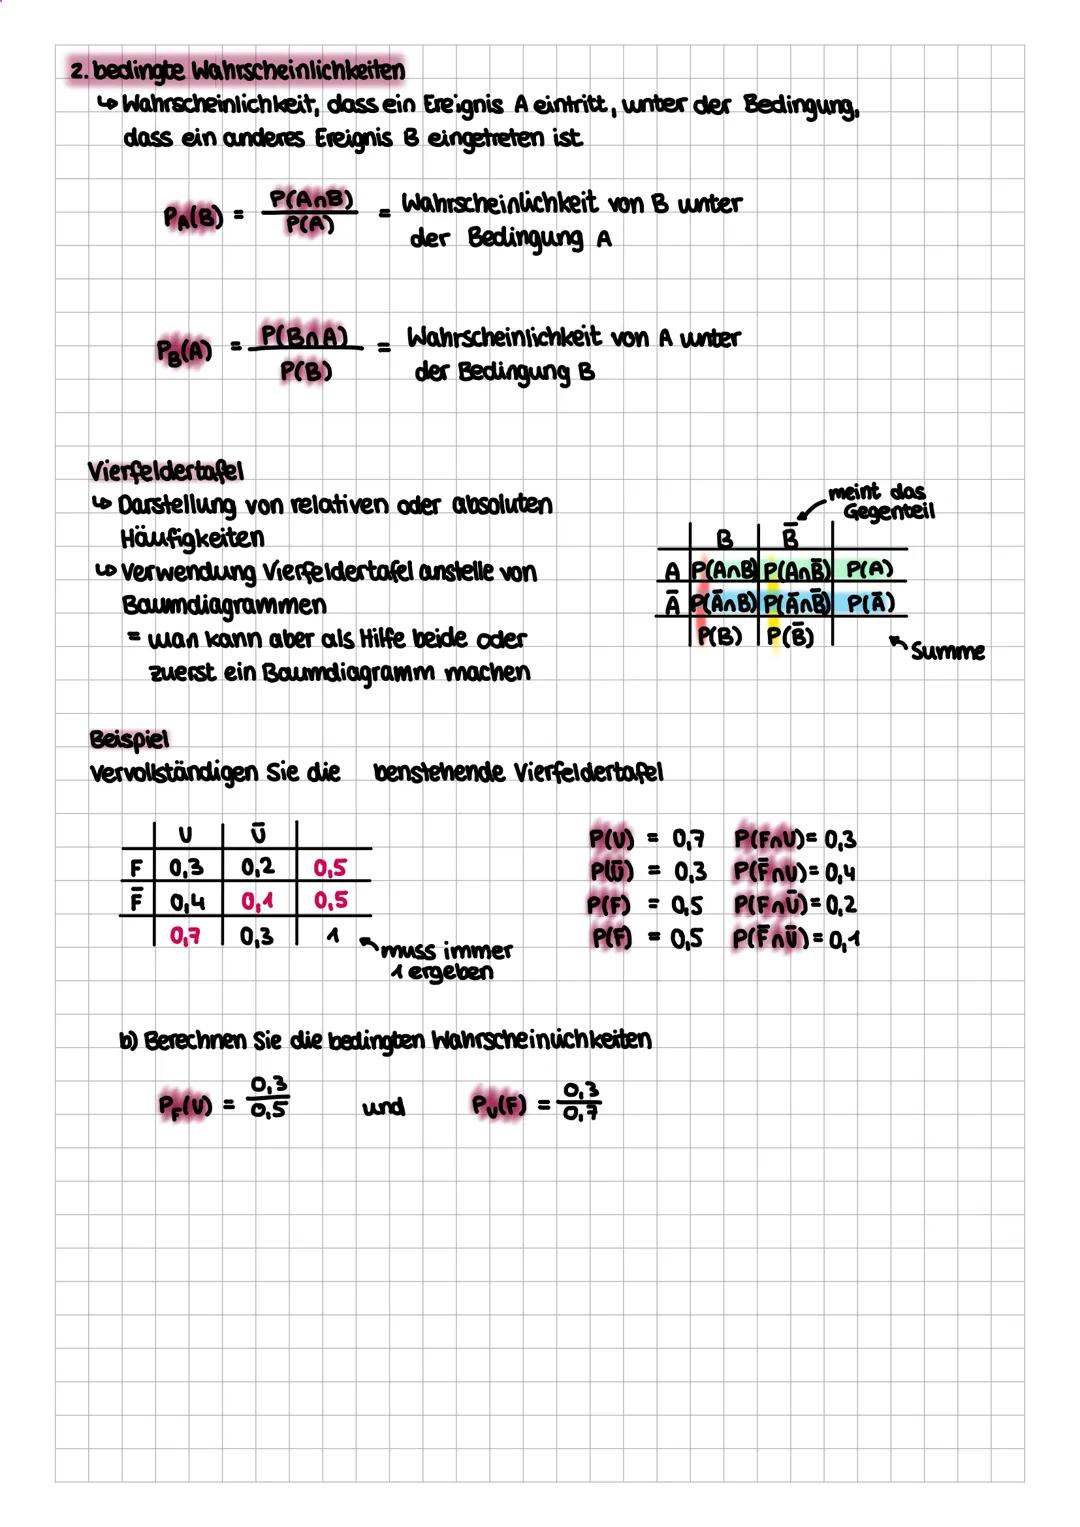 2. bedingte Wahrscheinlichkeiten
↳ Wahrscheinlichkeit, dass ein Ereignis A eintritt, unter der Bedingung,
dass ein anderes Ereignis B eingetreten ist
P_A(B) = P(A∩B) / P(A) = Wahrscheinlichkeit von B unter
der Bedingung A
P_B(A) = P(B∩A) / P(B) = Wahrscheinlichkeit von A unter
der Bedingung B
Vierfeldertafel
↳ Darstellung von relativen oder absoluten
Häufigkeiten
↳ Verwendung Vierfeldertafel anstelle von
Baumdiagrammen
= man kann aber als Hilfe beide oder
zuerst ein Baumdiagramm machen
meint das
Gegenteil
B B̄
A P(A∩B) P(A∩B̄) P(A)
Ā P(Ā∩B) P(Ā∩B̄) P(Ā)
P(B) P(B̄)
Summe
Beispiel
Vervollständigen Sie die benstehende Vierfeldertafel
U Ū
F 0,3 0,2 0,5
F̄ 0,4 0,1 0,5
0,7 0,3 1
muss immer
1 ergeben
P(U) = 0,7 P(F∩U) = 0,3
P(Ū) = 0,3 P(F̄∩U) = 0,4
P(F) = 0,5 P(F∩Ū) = 0,2
P(F) = 0,5 P(F̄∩Ū) = 0,1
b) Berechnen Sie die bedingten Wahrscheinlichkeiten
P_F(U) = 0,3 / 0,5 und P_U(F) = 0,3 / 0,7